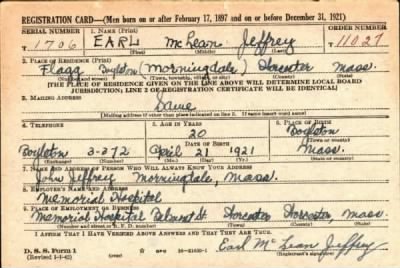 REGISTRATION CARD—(Men born on or after February 17, 1897 and on or before December 31, 1921)
SERIAL NUMBER 1. NAME (Print) ORDER NUMBER
T 1706 EARL McLean Jeffrey 11027
(First) (Middle) (Last)
2. PLACE OF RESIDENCE (Print)
Flagg Boylston (Morningdale) Worcester Mass.
(Number and street) (Town, township, village, or city) (County) (State)
[THE PLACE OF RESIDENCE GIVEN ON THE LINE ABOVE WILL DETERMINE LOCAL BOARD
JURISDICTION; LINE 2 OF REGISTRATION CERTIFICATE WILL BE IDENTICAL]
3. MAILING ADDRESS
Same
[Mailing address if other than place indicated on line 2. If same insert word same]
4. TELEPHONE 5. AGE IN YEARS 6. PLACE OF BIRTH
20 Boylston
DATE OF BIRTH (Town or county)
Boylston 3-372 April 21 1921 Mass.
(Exchange) (Number) (Mo.) (Day) (Yr.) (State or country)
7. NAME AND ADDRESS OF PERSON WHO WILL ALWAYS KNOW YOUR ADDRESS
John Jeffrey Morningdale, Mass.
8. EMPLOYER'S NAME AND ADDRESS
Memorial Hospital
9. PLACE OF EMPLOYMENT OR BUSINESS
Memorial Hospital Belmont St. Worcester Worcester Mass.
(Number and street or R. F. D. number) (Town) (County) (State)
I AFFIRM THAT I HAVE VERIFIED ABOVE ANSWERS AND THAT THEY ARE TRUE.
D. S. S. Form 1
(Revised 1-1-42) (over) Earl McLean Jeffrey
(Registrant's signature)